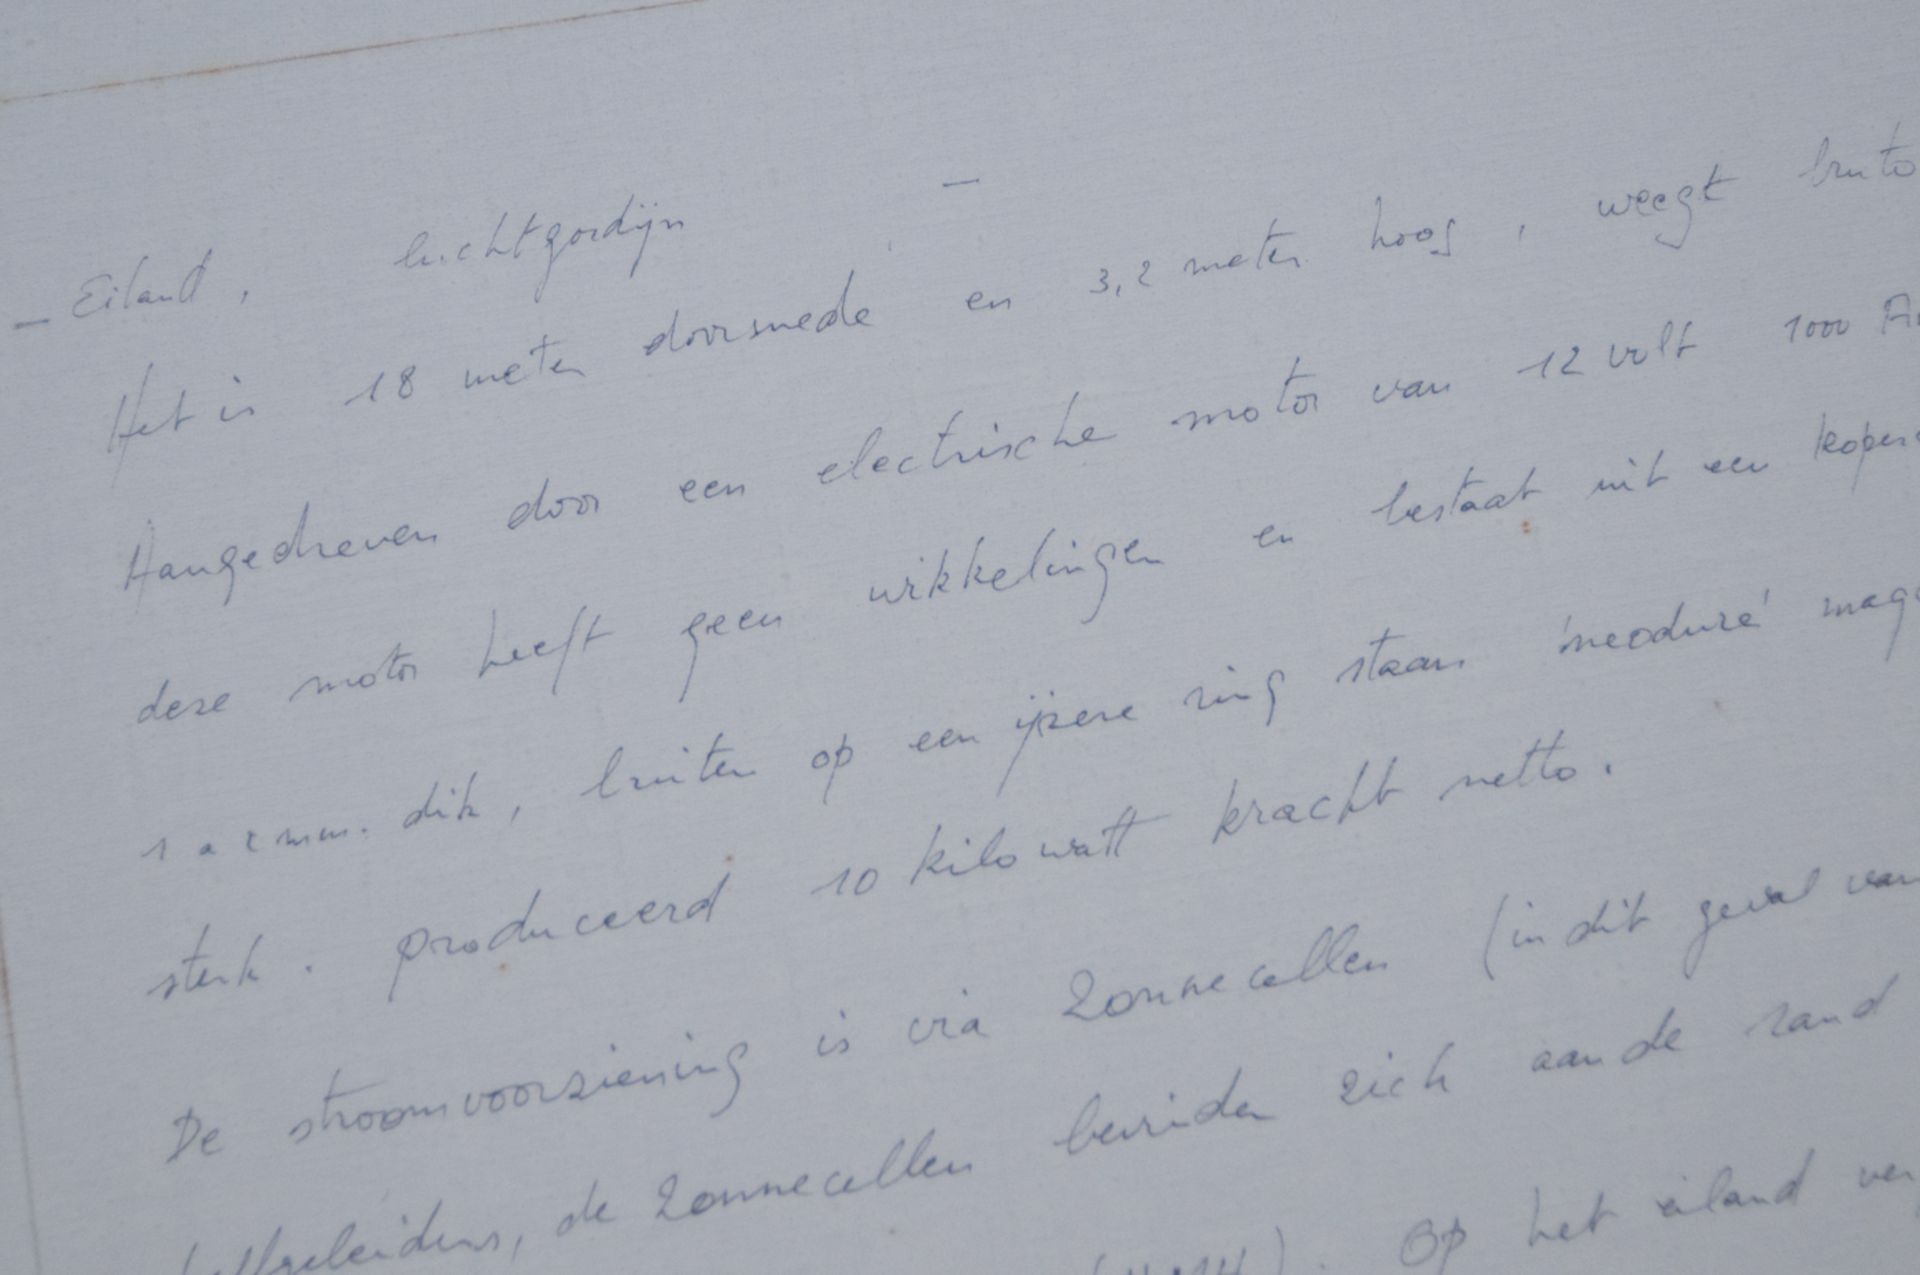 — Eiland, luchtgordijn —
Het is 18 meter doorsnede en 3,2 meter hoog, weegt bruto
Aangedreven door een electrische motor van 12 volt 1000
deze motor heeft geen wikkelingen en bestaat uit een koper
1 a 2 mm. dik, buiten op een ijzere ring staan 'neodure'
sterk. produceerd 10 kilowatt kracht netto.
De stroomvoorziening is via zonnecellen (in dit geval van
halfgeleiders, de zonnecellen bevinden zich aan de rand
Op het eiland